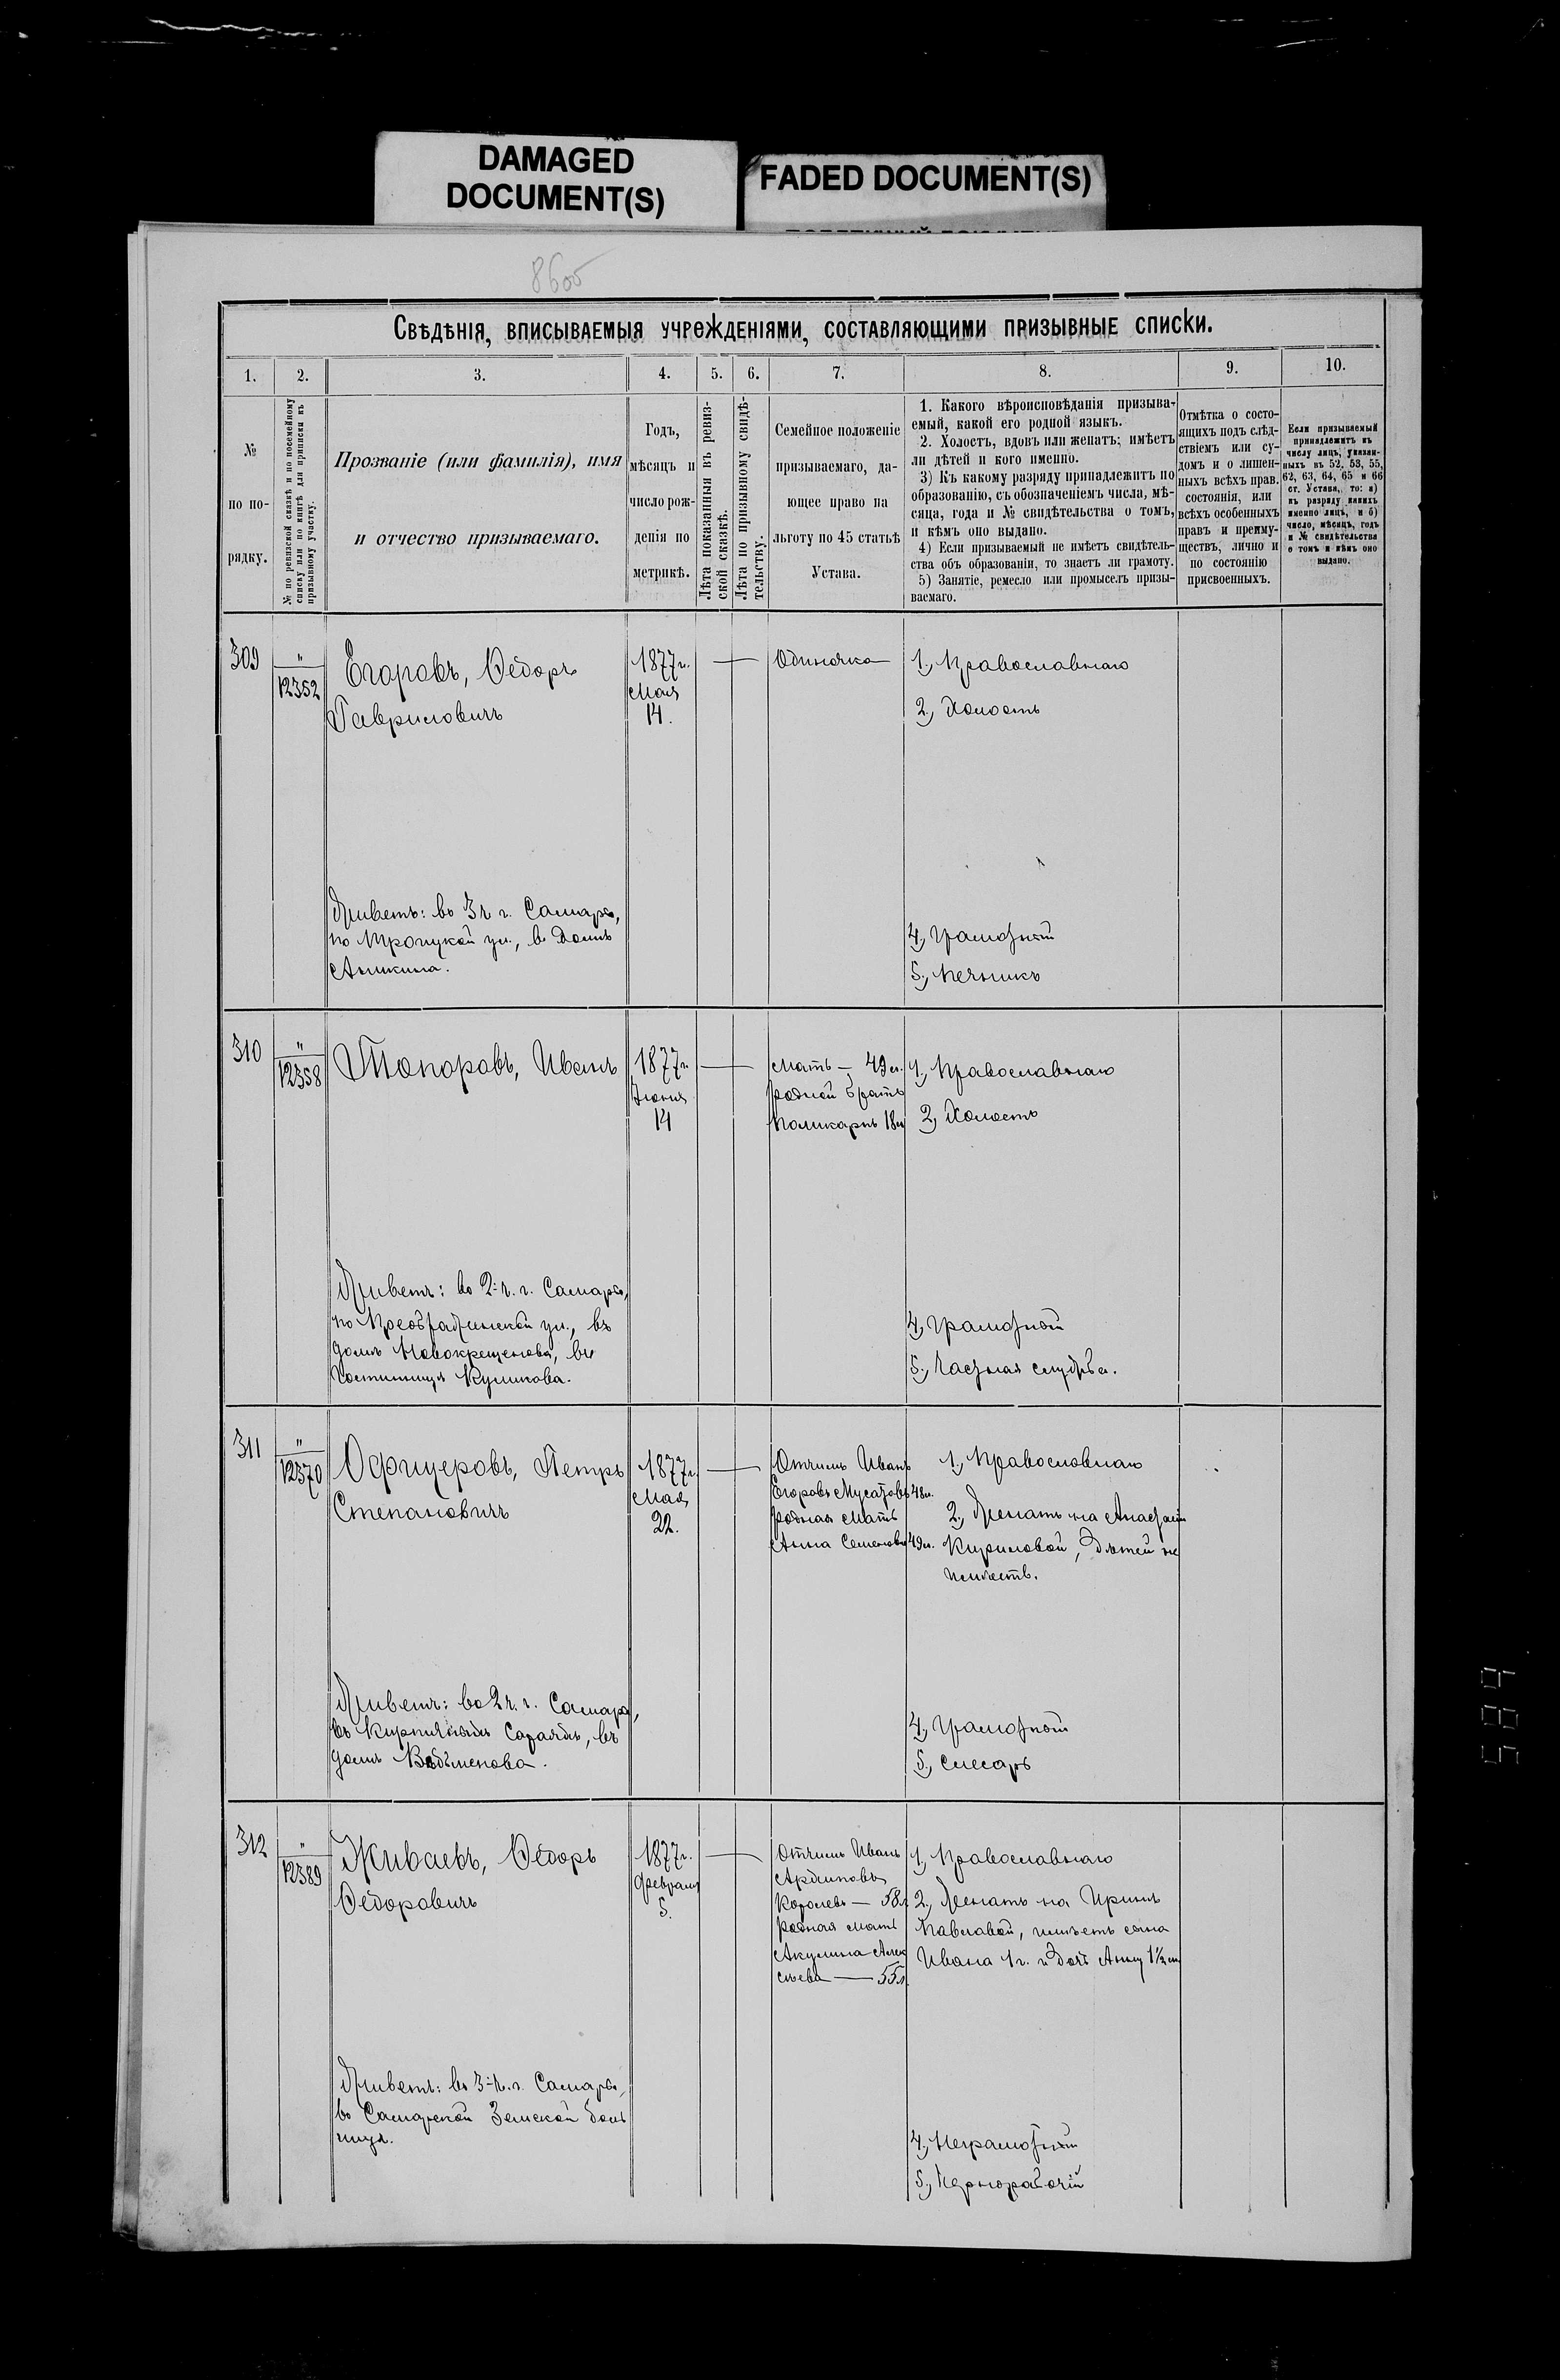 DAMAGED
DOCUMENT(S)
FADED DOCUMENT(S)
8605
Свѣдѣнія, вписываемыя учрежденіями, составляющими призывные списки.
1. 2. 3. 4. 5. 6. 7. 8. 9. 10.
№
по по-
рядку.
№ по ревизской сказкѣ и по посемейному
списку или по книгѣ для приписки къ
призывному участку.
Прозваніе (или фамилія), имя
и отчество призываемаго.
Годъ,
мѣсяцъ и
число рож-
денія по
метрикѣ.
Лѣта показанныя въ ревиз-
ской сказкѣ.
Лѣта по призывному свидѣ-
тельству.
Семейное положеніе
призываемаго, да-
ющее право на
льготу по 45 статьѣ
Устава.
1. Какого вѣроисповѣданія призыва-
емый, какой его родной языкъ.
2. Холостъ, вдовъ или женатъ; имѣетъ
ли дѣтей и кого именно.
3) Къ какому разряду принадлежитъ по
образованію, съ обозначеніемъ числа, мѣ-
сяца, года и № свидѣтельства о томъ,
и кѣмъ оно выдано.
4) Если призываемый не имѣетъ свидѣтель-
ства объ образованіи, то знаетъ ли грамоту.
5) Занятіе, ремесло или промыселъ призы-
ваемаго.
Отмѣтка о состо-
ящихъ подъ слѣд-
ствіемъ или су-
домъ и о лишен-
ныхъ всѣхъ прав.
состоянія, или
всѣхъ особенныхъ
правъ и преиму-
ществъ, лично и
по состоянію
присвоенныхъ.
Если призываемый
принадлежитъ къ
числу лицъ, указан-
ныхъ въ 52, 53, 55,
62, 63, 64, 65 и 66
ст. Устава, то: а)
къ разряду какихъ
именно лицъ, и б)
число, мѣсяцъ, годъ
и № свидѣтельства
о томъ и кѣмъ оно
выдано.
309
"
12352
Егоровъ, Ѳедоръ
Гавриловичъ
1877 г.
Мая
14.
Одиночка
1., Православнаго
2., Холостъ
Живетъ: во 3 ч г. Самары,
по Троицкой ул., въ домѣ
Аникина.
4., Грамотный
5., Печникъ
310
"
12358
Топоровъ, Иванъ
1877 г.
Іюня
14
Мать — 49 л.
родной братъ
Поликарпъ 18 л
1., Православнаго
2., Холостъ
Живетъ: во 2-ч. г. Самары,
по Преображенской ул., въ
домѣ Новокрещенова, въ
гостинницѣ Куликова.
4., Грамотной
5., Частная служба.
311
"
12370
Офицеровъ, Петръ
Степановичъ
1877 г.
Мая
22.
Отчимъ Иванъ
Егоровъ Мусатовъ 48 л.
родная мать
Анна Семенова 49 л.
1., Православнаго
2., Женатъ на Анастасіи
Кириловой, дѣтей не
имѣетъ.
Живетъ: во 2 ч. г. Самары,
въ Кирпичныхъ Сараяхъ, въ
домѣ
4., Грамотной
5., Слесарь
312
"
12389
Живаевъ, Ѳедоръ
Ѳедоровичъ
1877 г.
Февраля
5.
Отчимъ Иванъ
Королевъ — 58 л
родная мать
Акулина Алек
сѣева — 55 л.
1., Православнаго
2., Женатъ на Иринѣ
Павловой, имѣетъ сына
Ивана 1 г. и дочь Анну 1½ л
Живетъ: въ 3-ч. г. Самары,
въ Самарской Земской боль
ницѣ.
4., Неграмотный
5., Чернорабочій
589